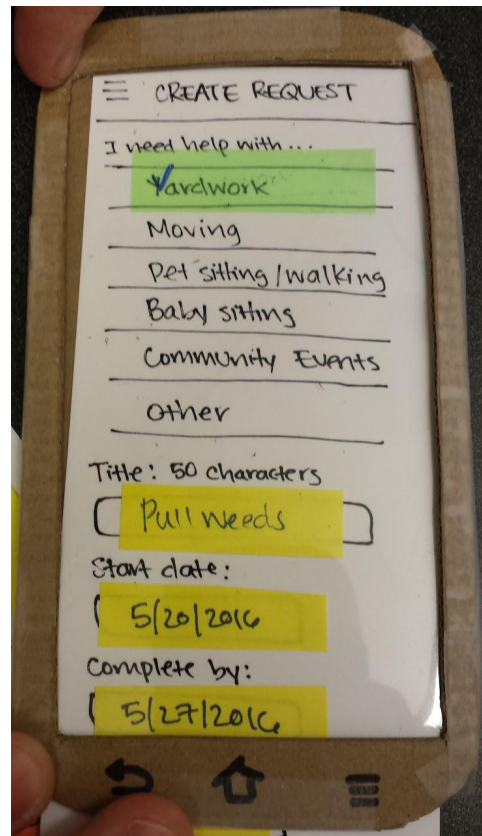 CREATE REQUEST
I need help with...
Yardwork
Moving
Pet sitting/walking
Baby sitting
Community Events
Other
Title: 50 characters
Pull weeds
Start date:
5/20/2016
Complete by:
5/27/2016